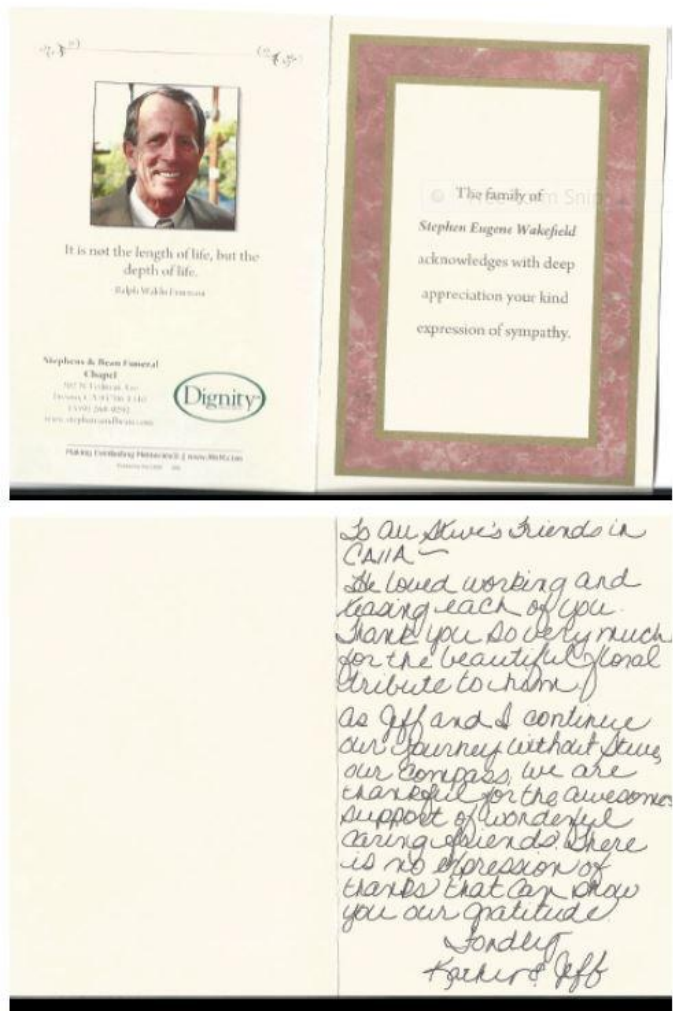 It is not the length of life, but the
depth of life.
Ralph Waldo Emerson
Stephens & Bean Funeral
Chapel
Dignity
The family of
Stephen Eugene Wakefield
acknowledges with deep
appreciation your kind
expression of sympathy.
To All Steve's Friends in
CAIIA –
He loved working and
teasing each of you.
Thank you so very much
for the beautiful floral
tribute to him!
As Jeff and I continue
our journey without Steve,
our compass, we are
thankful for the awesome
support of wonderful
caring friends. There
is no expression of
thanks that can show
you our gratitude.
Fondly,
Kathie & Jeff